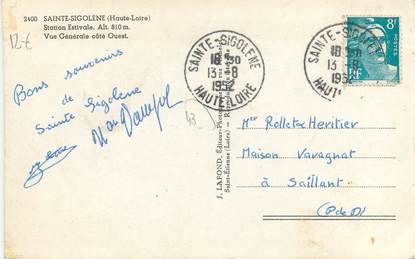 2400 SAINTE-SIGOLÈNE (Haute-Loire)
Station Estivale. Alt. 810 m.
Vue Générale côté Ouest.
12€
Bons souvenirs
de
Sainte Sigolène
43
J. LAFOND, Éditeur-Photo
Saint-Étienne (Loire)
SAINTE-SIGOLÈNE
18 30
13 - 8
1952
HAUTE-LOIRE
SAINTE-SIGOLÈNE
18 30
13 - 8
1952
HAUT
8F
RF
Mer Rollet Heritier
Maison Varagnat
à Saillant
(P de D)